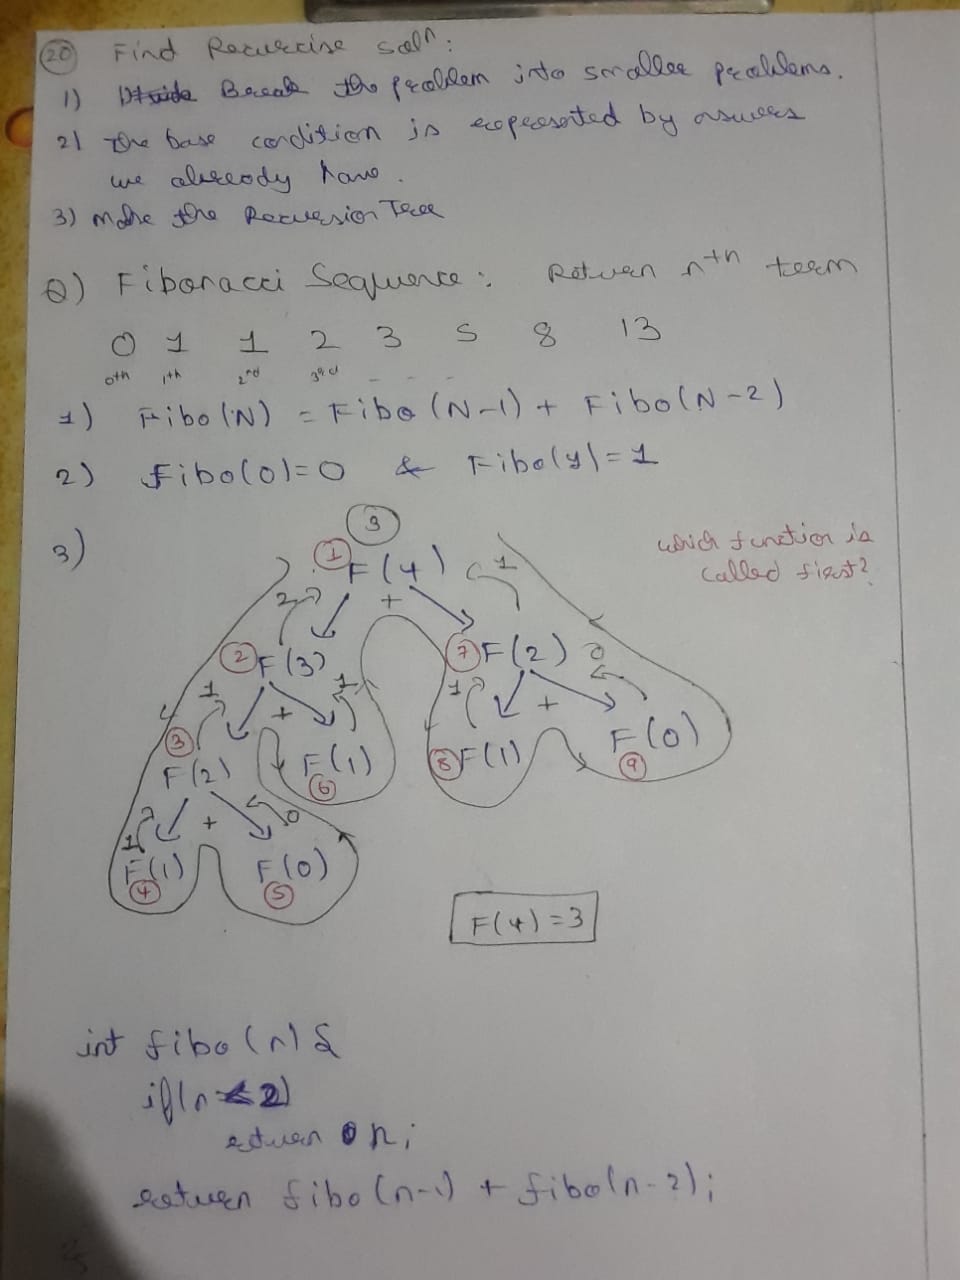 20 Find Recurcise solⁿ:
1) Divide Break the problem into smaller problems.
2) The base condition is represented by answers
we already have.
3) Make the Recursion Tree
Q) Fibonacci Sequence: Return nth term
0 1 1 2 3 5 8 13
0th 1th 2nd 3rd - - -
1) Fibo(N) = Fibo(N-1) + Fibo(N-2)
2) fibo(0)=0 & Fibo(1)=1
3) 3
which function is
called first?
1 F(4) 1
2 +
2 F(3) 7 F(2) 0
1 + 1 1 +
3 F(2) F(1) 6 8 F(1) F(0) 9
1 + 0
F(1) F(0)
4 5
F(4)=3
int fibo(n){
if(n<2)
return 0 n;
return fibo(n-1) + fibo(n-2);